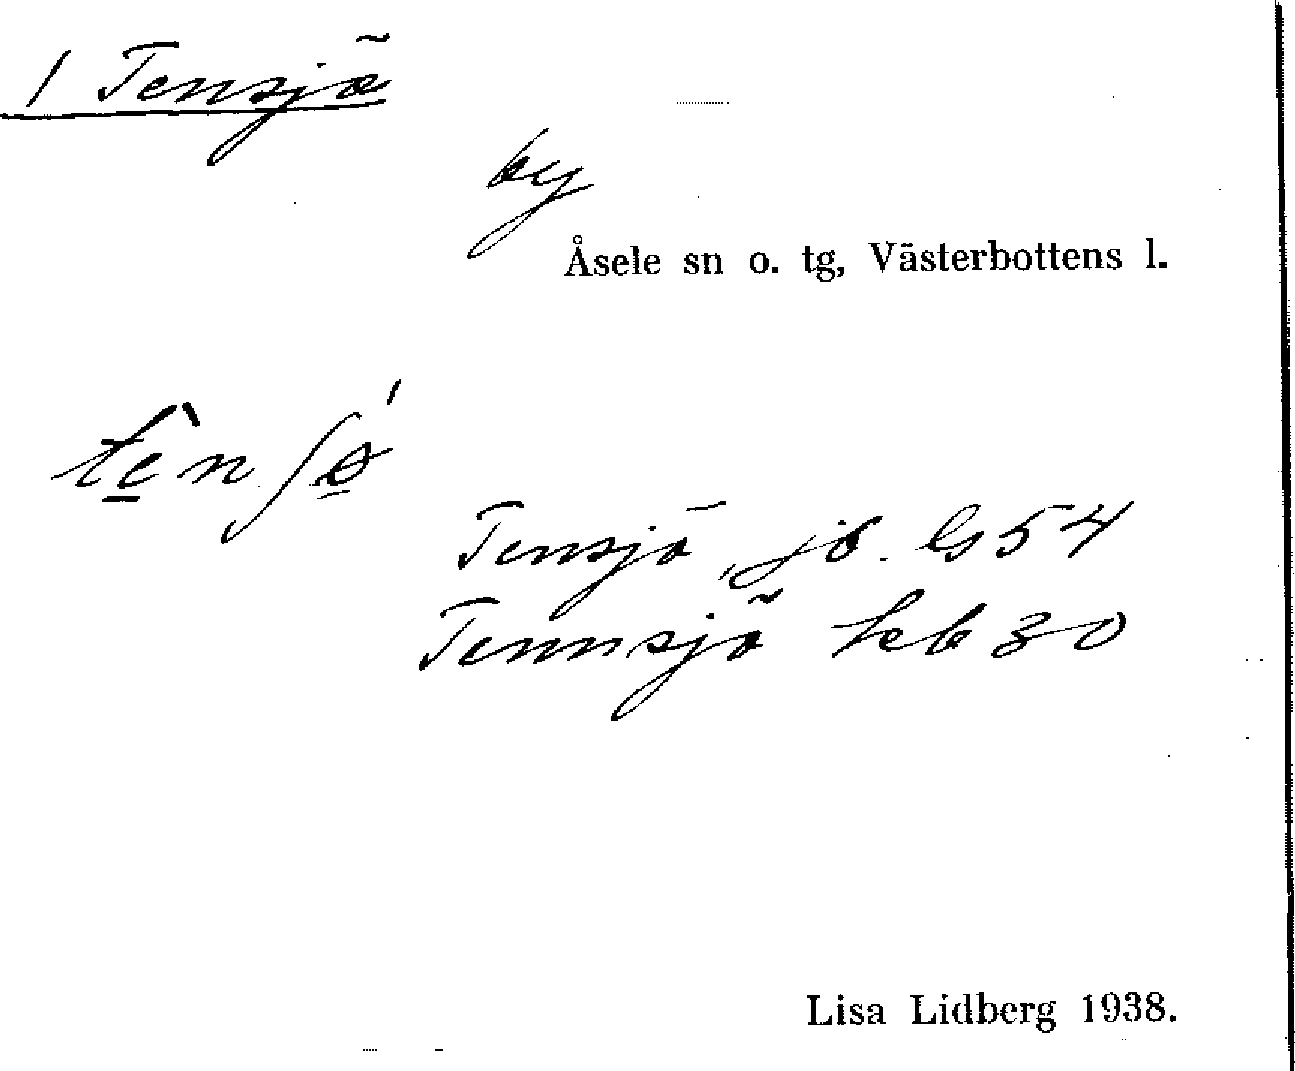 1 Tensjö
by
Åsele sn o. tg, Västerbottens l.
tè̱nʃǿ̱
Tensjö, jb. G 54
Tennsjö heb 30
Lisa Lidberg 1938.